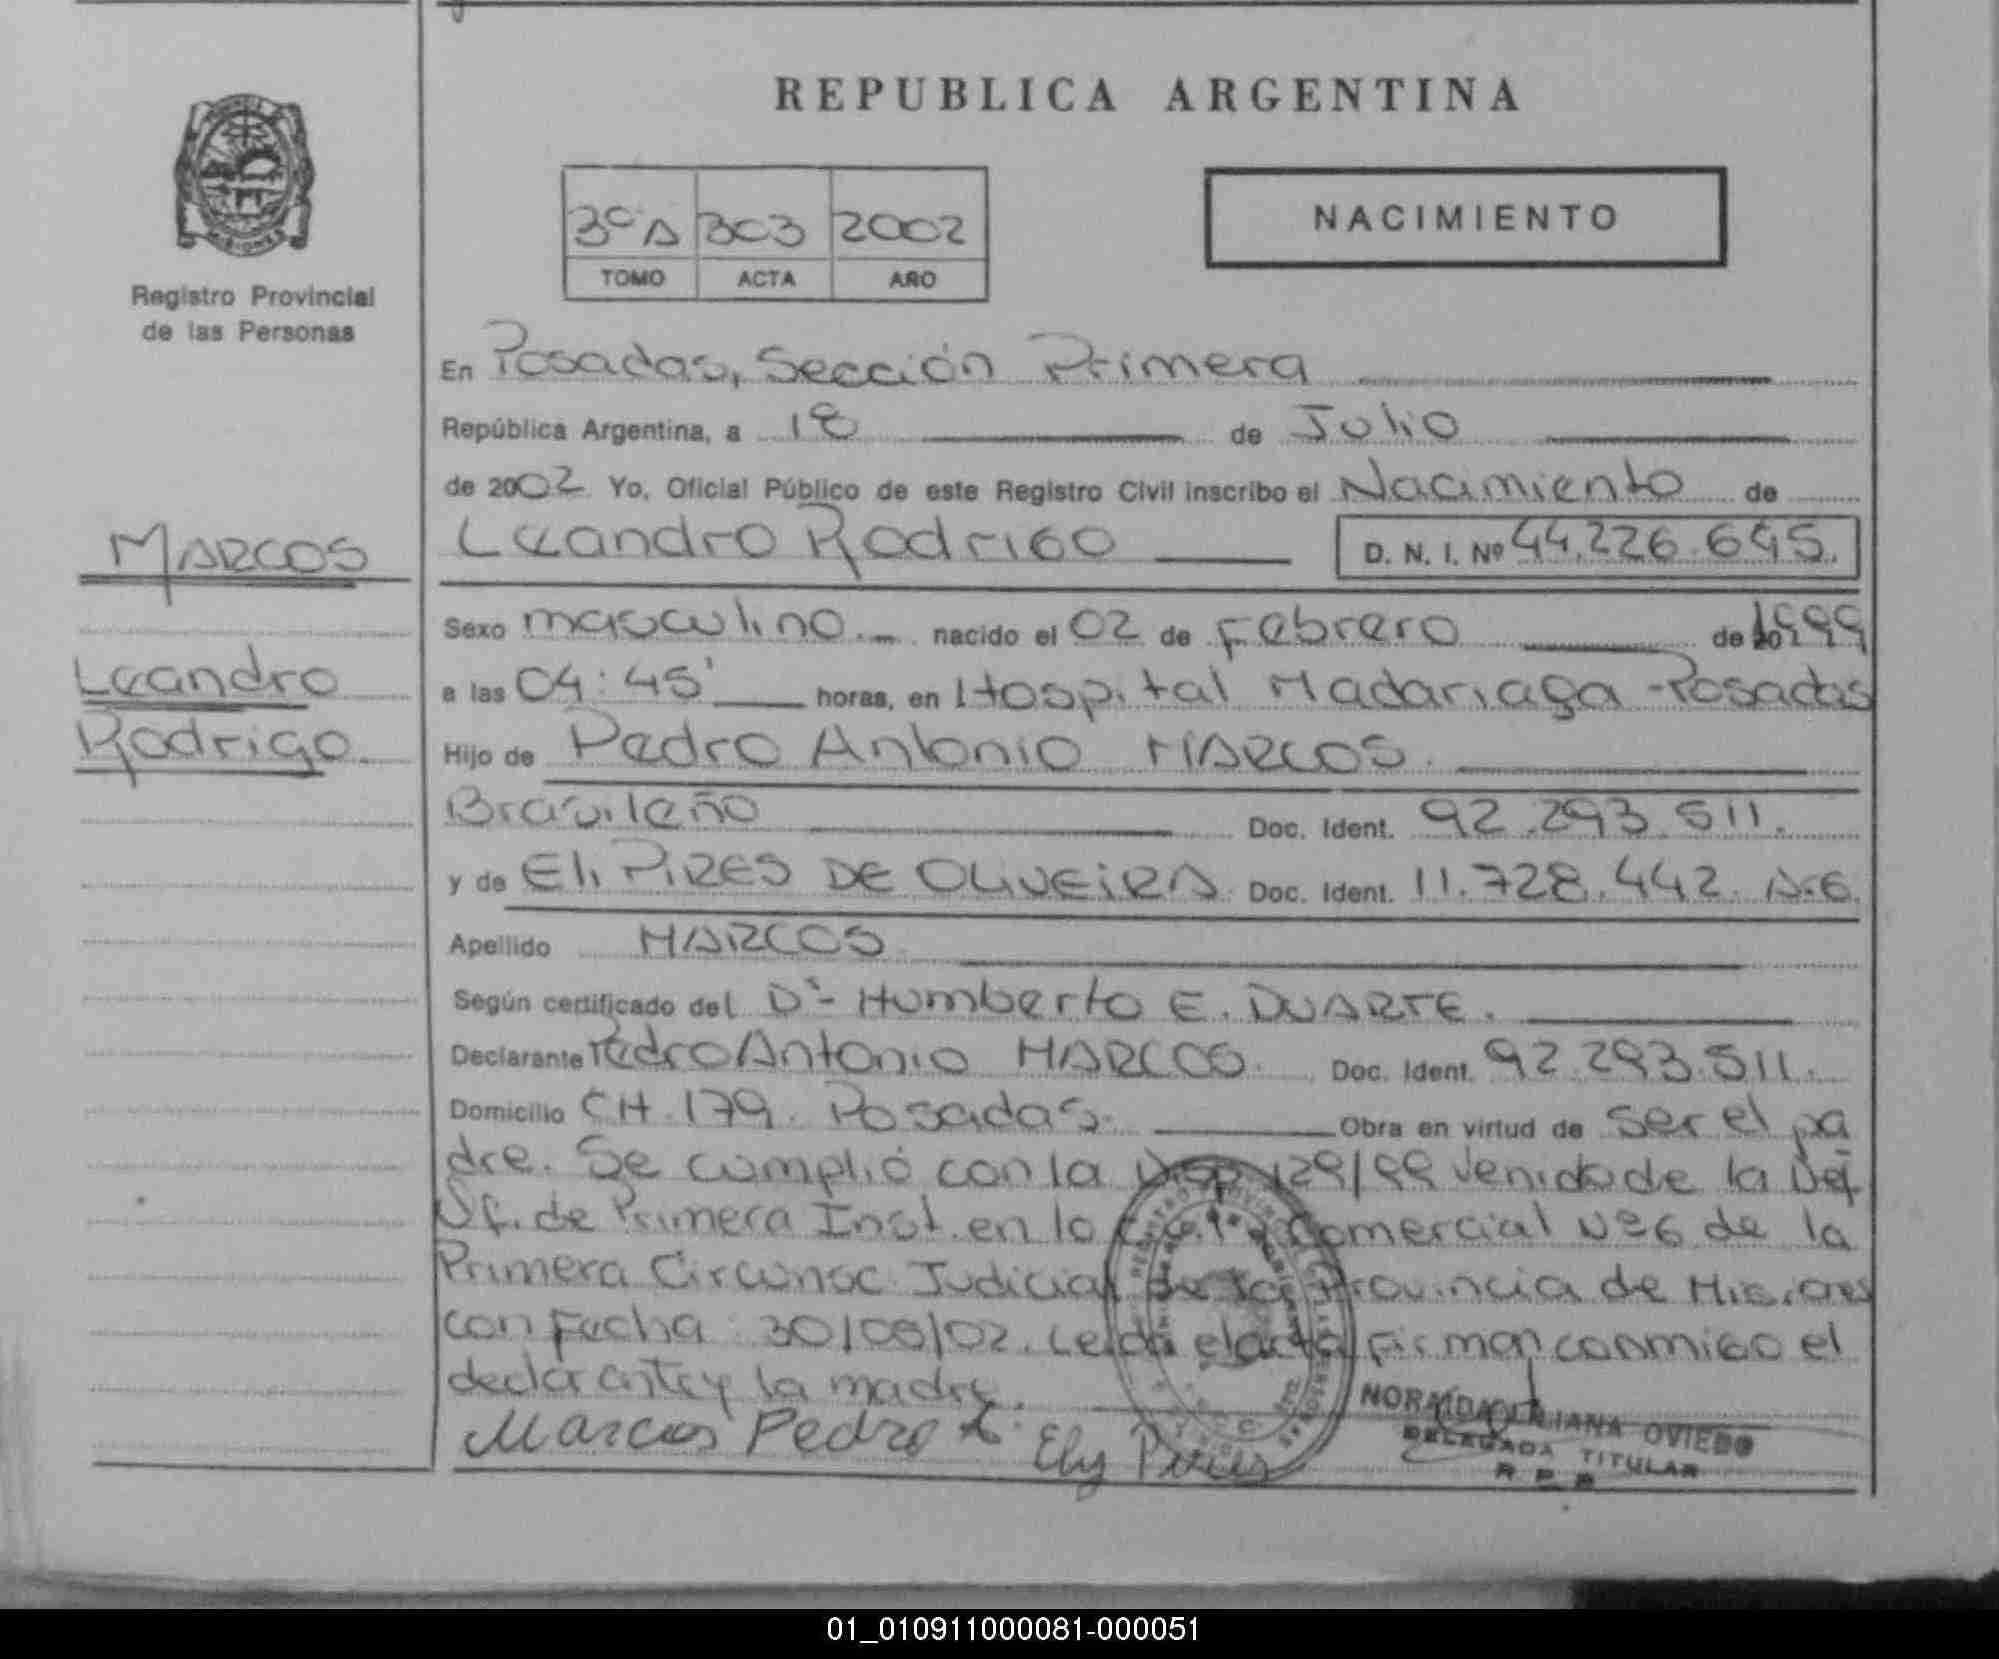 REPUBLICA ARGENTINA
MISIONES
Registro Provincial
de las Personas
3º A 303 2002
TOMO ACTA AÑO
NACIMIENTO
En Posadas, Sección Primera
República Argentina, a 18 de Julio
de 2002 Yo, Oficial Público de este Registro Civil inscribo el Nacimiento de
MARCOS
Leandro Rodrigo
Leandro Rodrigo D. N. I. Nº 44.226.695.
Sexo masculino. nacido el 02 de Febrero de 1999
a las 04:45' horas, en Hospital Madariaga - Posadas
Hijo de Pedro Antonio MARCOS.
Brasileño Doc. Ident. 92.293.511.
y de Eli PIRES DE OLIVEIRA Doc. Ident. 11.728.442. A.6.
Apellido MARCOS
Según certificado del Dr- Humberto E. DUARTE.
Declarante Pedro Antonio MARCOS. Doc. Ident. 92.293.511.
Domicilio CH. 179. Posadas. Obra en virtud de ser el pa
dre. Se cumplió con la Disp 129/99 venida de la Def
Of. de Primera Inst. en lo Comercial Nº6 de la
Primera Circunsc. Judicial de la Provincia de Misiones
con fecha: 30/08/02. Leida el acta firman conmigo el
declarante y la madre.
Marcos Pedro A. Ely Pires
NORMA LILIANA OVIEDO
DELEGADA TITULAR
R. P. P.
01_010911000081-000051